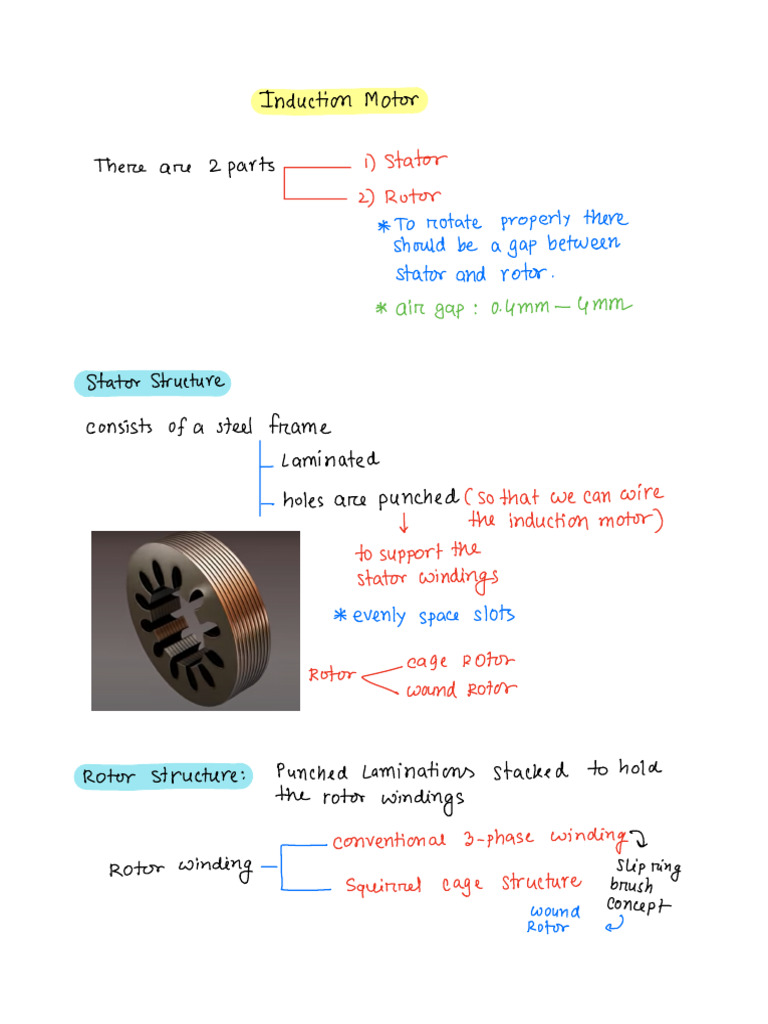 Induction Motor
There are 2 parts
1) Stator
2) Rotor
* To rotate properly there
should be a gap between
stator and rotor.
* air gap : 0.4mm – 4mm
Stator Structure
consists of a steel frame
Laminated
holes are punched (so that we can wire
the induction motor)
to support the
stator windings
* evenly space slots
Rotor
cage rotor
wound rotor
Rotor structure: Punched Laminations stacked to hold
the rotor windings
Rotor winding
conventional 3-phase winding
Squirrel cage structure
slip ring
brush
concept
wound
Rotor